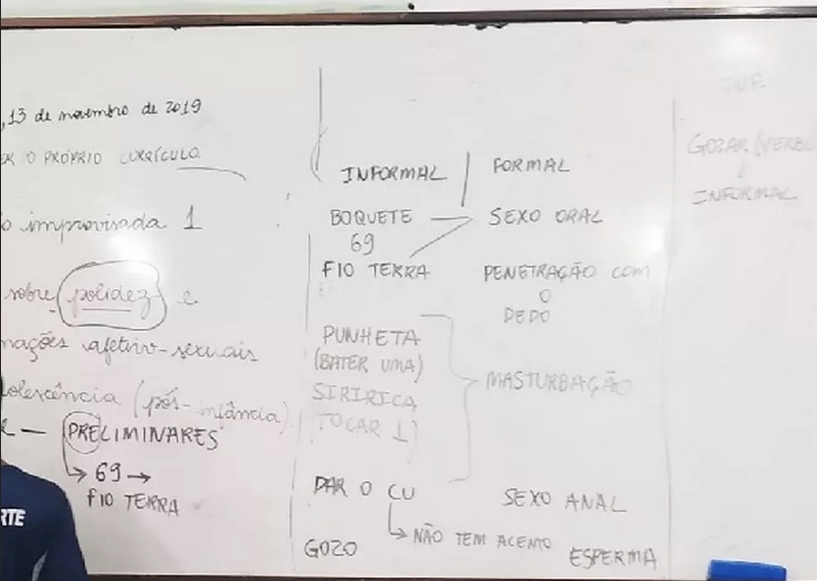 , 13 de novembro de 2019
ER O PRÓPRIO CURRÍCULO
o improvisada 1
sobre polidez e
mações afetivo-sexuais
dolescência (pós-infância).
e — PRELIMINARES
→ 69 →
FIO TERRA
RTE
INFORMAL
BOQUETE
69
FIO TERRA
PUNHETA
(BATER UMA)
SIRIRICA
(TOCAR 1)
DAR O CU
→ NÃO TEM ACENTO
GOZO
FORMAL
SEXO ORAL
PENETRAÇÃO COM
O
DEDO
MASTURBAÇÃO
SEXO ANAL
ESPERMA
INF.
GOZAR (VERBO
↓
INFORMAL